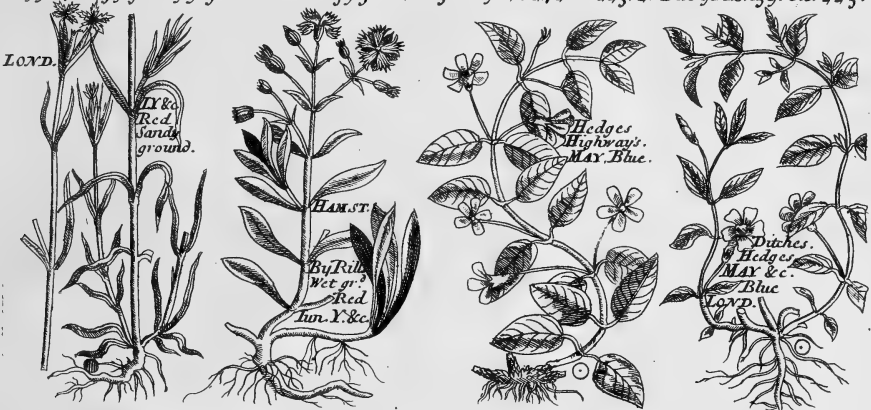 LOND.
IY &c
Red
Sandy
ground.
HAMST.
By Rills
Wet gr.d
Red
Iun. Y. &c.
Hedges
Highway's.
MAY, Blue.
Ditches.
Hedges
MAY &c.
Blue
LOND.